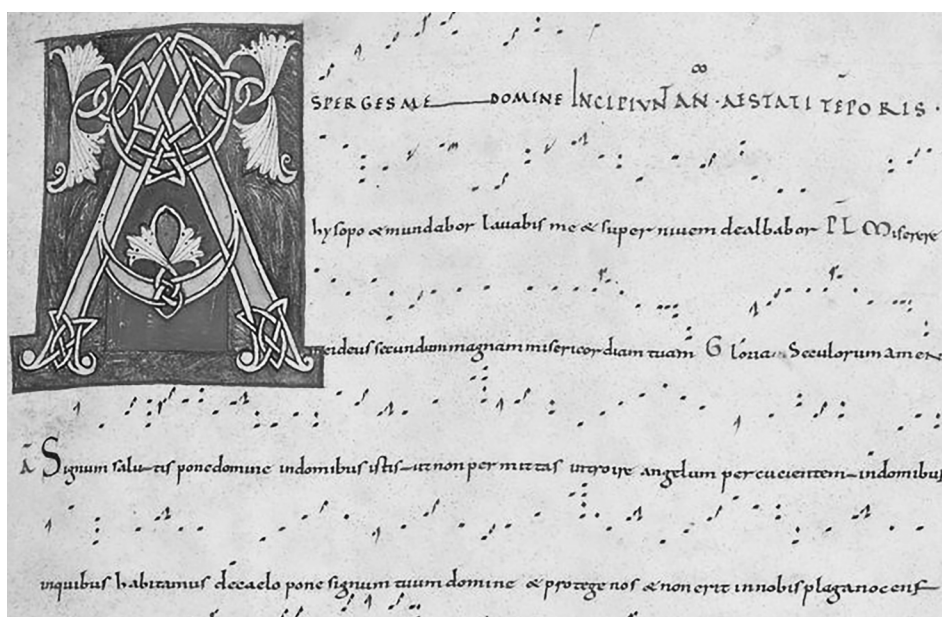 ASPERGES ME DOMINE INCIPIUNT AN̄ AESTATI TĒPORIS .
hysopo & mundabor lauabis me & super niuem dealbabor PL Miserere
mei deus secundum magnam misericordiam tuam Gloria Seculorum amen
Ā Signum salutis pone domine indomibus istis ut non permittas introire angelum percucientem indomibus
inquibus habitamus decaelo pone signum tuum domine & protege nos & non erit innobis plaga nocens